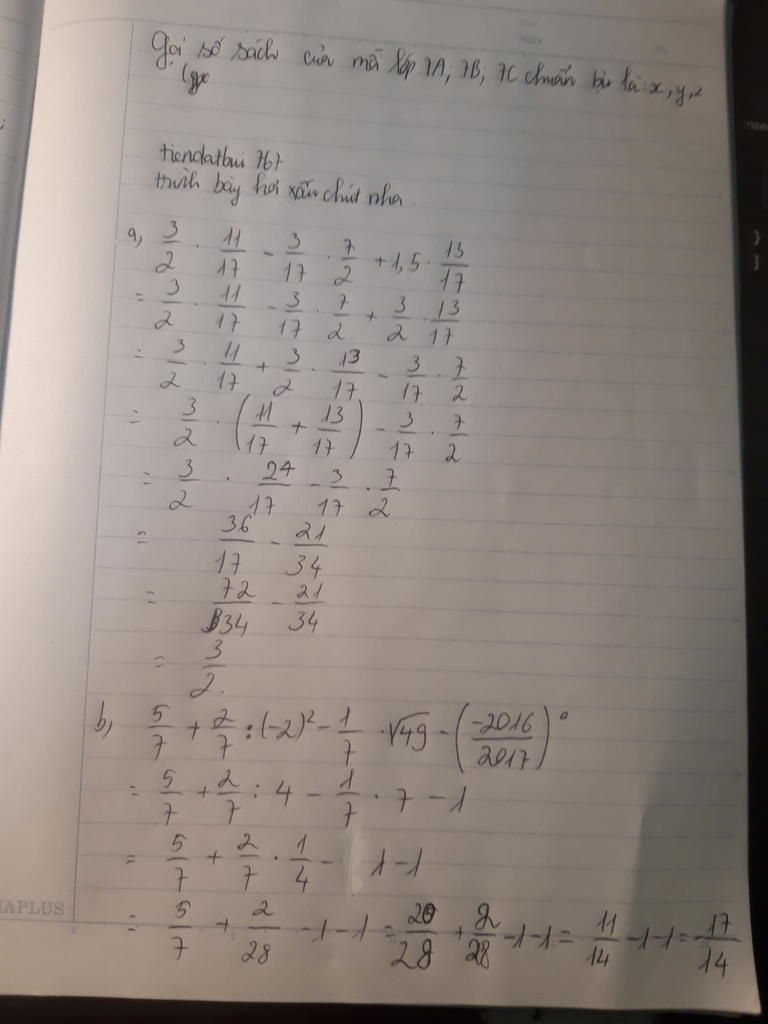 Gọi số sách của mỗi lớp 7A; 7B; 7C chuẩn bị là: x, y, z
tiendatbui 767
trình bày hơi xấu chút nha
a, 3/2 . 11/17 - 3/17 . 7/2 + 1,5 . 13/17
= 3/2 . 11/17 - 3/17 . 7/2 + 3/2 . 13/17
= 3/2 . 11/17 + 3/2 . 13/17 - 3/17 . 7/2
= 3/2 . (11/17 + 13/17) - 3/17 . 7/2
= 3/2 . 24/17 - 3/17 . 7/2
= 36/17 - 21/34
= 72/34 - 21/34
= 3/2.
b, 5/7 + 2/7 : (-2)² - 1/7 . √49 - (-2016/2017)⁰
= 5/7 + 2/7 : 4 - 1/7 . 7 - 1
= 5/7 + 2/7 . 1/4 - 1 - 1
= 5/7 + 2/28 - 1 - 1 = 20/28 + 2/28 - 1 - 1 = 11/14 - 1 - 1 = 17/14
APLUS